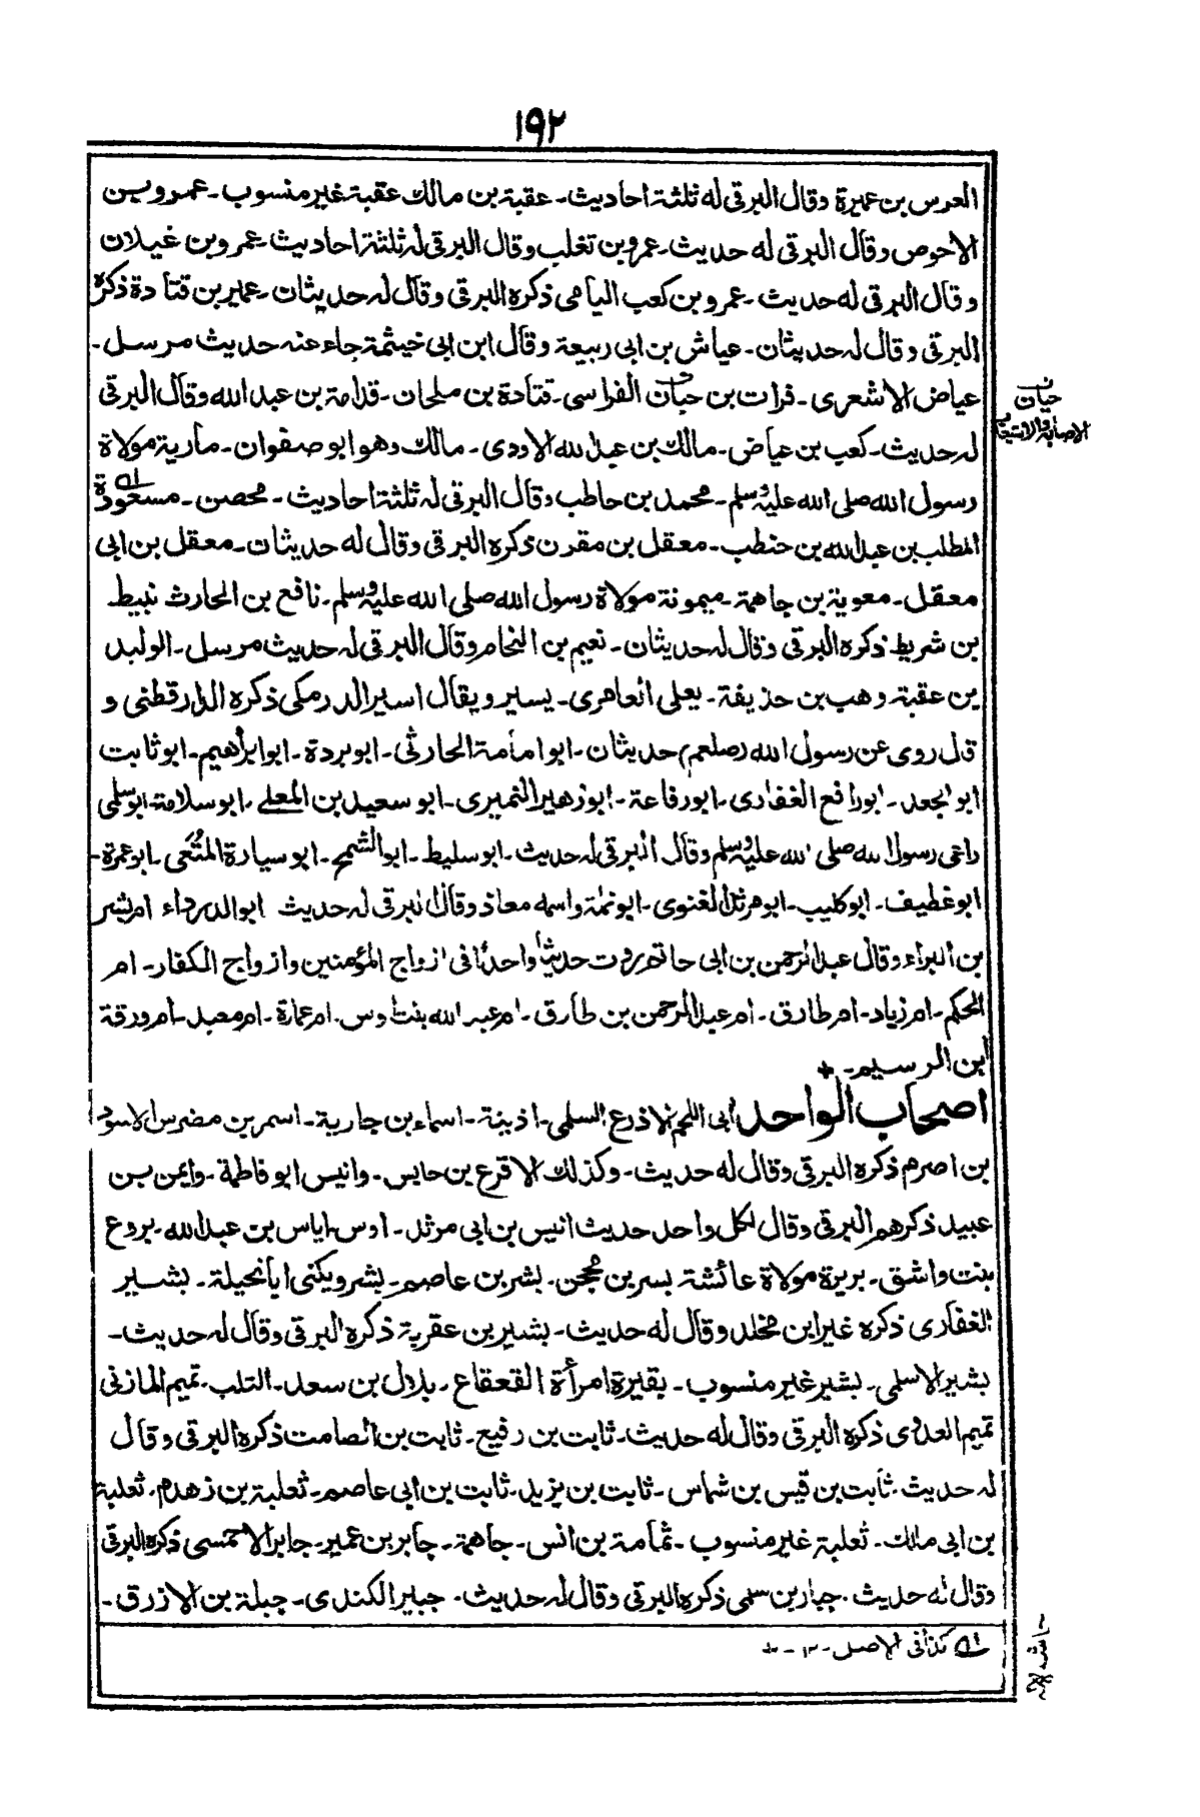 ١٩٢
العرس بن عميرة وقال البرقى له ثلثة احاديث۔ عقبة بن مالك عقبة غير منسوب۔ عمرو بن
الاحوص وقال البرقى له حديث۔ عمرو بن تغلب وقال البرقى له ثلثة احاديث۔ عمرو بن غيلان
وقال البرقى له حديث۔ عمرو بن كعب اليامى ذكره البرقى وقال له حديثان۔ عمير بن قتادة ذكره
البرقى وقال له حديثان۔ عياش بن ابى ربيعة وقال ابن ابى خيثمة جاء عنه حديث مرسل۔
عياض الاشعرى۔ فرات بن حبان الفراسى۔ قتادة بن ملحان۔ قدامة بن عبد الله وقال البرقى
له حديث۔ كعب بن عياض۔ مالك بن عبد الله الاودى۔ مالك وهو ابو صفوان۔ مارية مولاة
رسول الله صلى الله عليه وسلم۔ محمد بن حاطب وقال البرقى له ثلثة احاديث۔ محصن۔ مسعودة
المطلب بن عبد الله بن حنطب۔ معقل بن مقرن ذكره البرقى وقال له حديثان۔ معقل بن ابى
معقل۔ معوية بن جاهمة۔ ميمونة مولاة رسول الله صلى الله عليه وسلم۔ نافع بن الحارث نبيط
بن شريط ذكره البرقى وقال له حديثان۔ نعيم بن النحام وقال البرقى له حديث مرسل۔ الوليد
بن عقبة وهب بن حذيفة۔ يعلى العامرى۔ يسير ويقال اسير الدرمكى ذكره الدارقطنى و
قد روى عن رسول الله (صلعم) حديثان۔ ابو امامة الحارثى۔ ابو بردة۔ ابو ابراهيم۔ ابو ثابت
ابو الجعد۔ ابو رافع الغفارى۔ ابو رفاعة۔ ابو زهير النميرى۔ ابو سعيد بن المعلے۔ ابو سلامة۔ ابو سلمى
راعى رسول الله صلى الله عليه وسلم وقال البرقى له حديث۔ ابو سليط۔ ابو الشمح۔ ابو سيارة المتعى۔ ابو عمرة۔
ابو غطيف۔ ابو كليب۔ ابو مرثد الغنوى۔ ابو نملة واسمه معاذ وقال البرقى له حديث ابو الدرداء ام بشر
بن البراء وقال عبد الرحمن بن ابى حاتم روت حديثا واحدا فى ازواج المؤمنين وازواج الكفار۔ ام
الحكم۔ ام زياد۔ ام طارق۔ ام عبد الرحمن بن طارق۔ ام عبد الله بنت اوس۔ ام عمارة۔ ام معبد۔ ام ورقة
ابن الرسيم۔
اصحاب الواحد ابى اللحم الاذرع السلمى۔ اذينة۔ اسماء بن جارية۔ اسمر بن مضرس الاسود
بن اصرم ذكره البرقى وقال له حديث۔ وكذلك الاقرع بن حابس۔ وانيس ابو فاطمة۔ وايمن بن
عبيد ذكرهم البرقى وقال لكل واحد حديث انيس بن ابى مرثد۔ اوس۔ اياس بن عبد الله۔ بروع
بنت واشق۔ بريرة مولاة عائشة بسر بن محجن۔ بشر بن عاصم۔ بشر ويكنى ابا نحيلة۔ بشير
الغفارى ذكره غير ابن مخلد وقال له حديث۔ بشير بن عقربة ذكره البرقى وقال له حديث۔
بشير الاسلمى۔ بشير غير منسوب۔ بقيرة امرأة القعقاع۔ بلال بن سعد۔ التلب۔ تميم المازنى
تميم العدوى ذكره البرقى وقال له حديث۔ ثابت بن رفيع۔ ثابت بن الصامت ذكره البرقى وقال
له حديث۔ ثابت بن قيس بن شماس۔ ثابت بن يزيد۔ ثابت بن ابى عاصم۔ ثعلبة بن زهدم۔ ثعلبة
بن ابى مالك۔ ثعلبة غير منسوب۔ ثمامة بن انس۔ جاهمة۔ جابر بن عمير۔ جابر الاحمسى ذكره البرقى
وقال له حديث۔ جبار بن سلمى ذكره البرقى وقال له حديث۔ جبير الكندى۔ جبلة بن الازرق۔
حيان
الاصابة والاستيعاب
كذا فى الاصل۔ ١٢